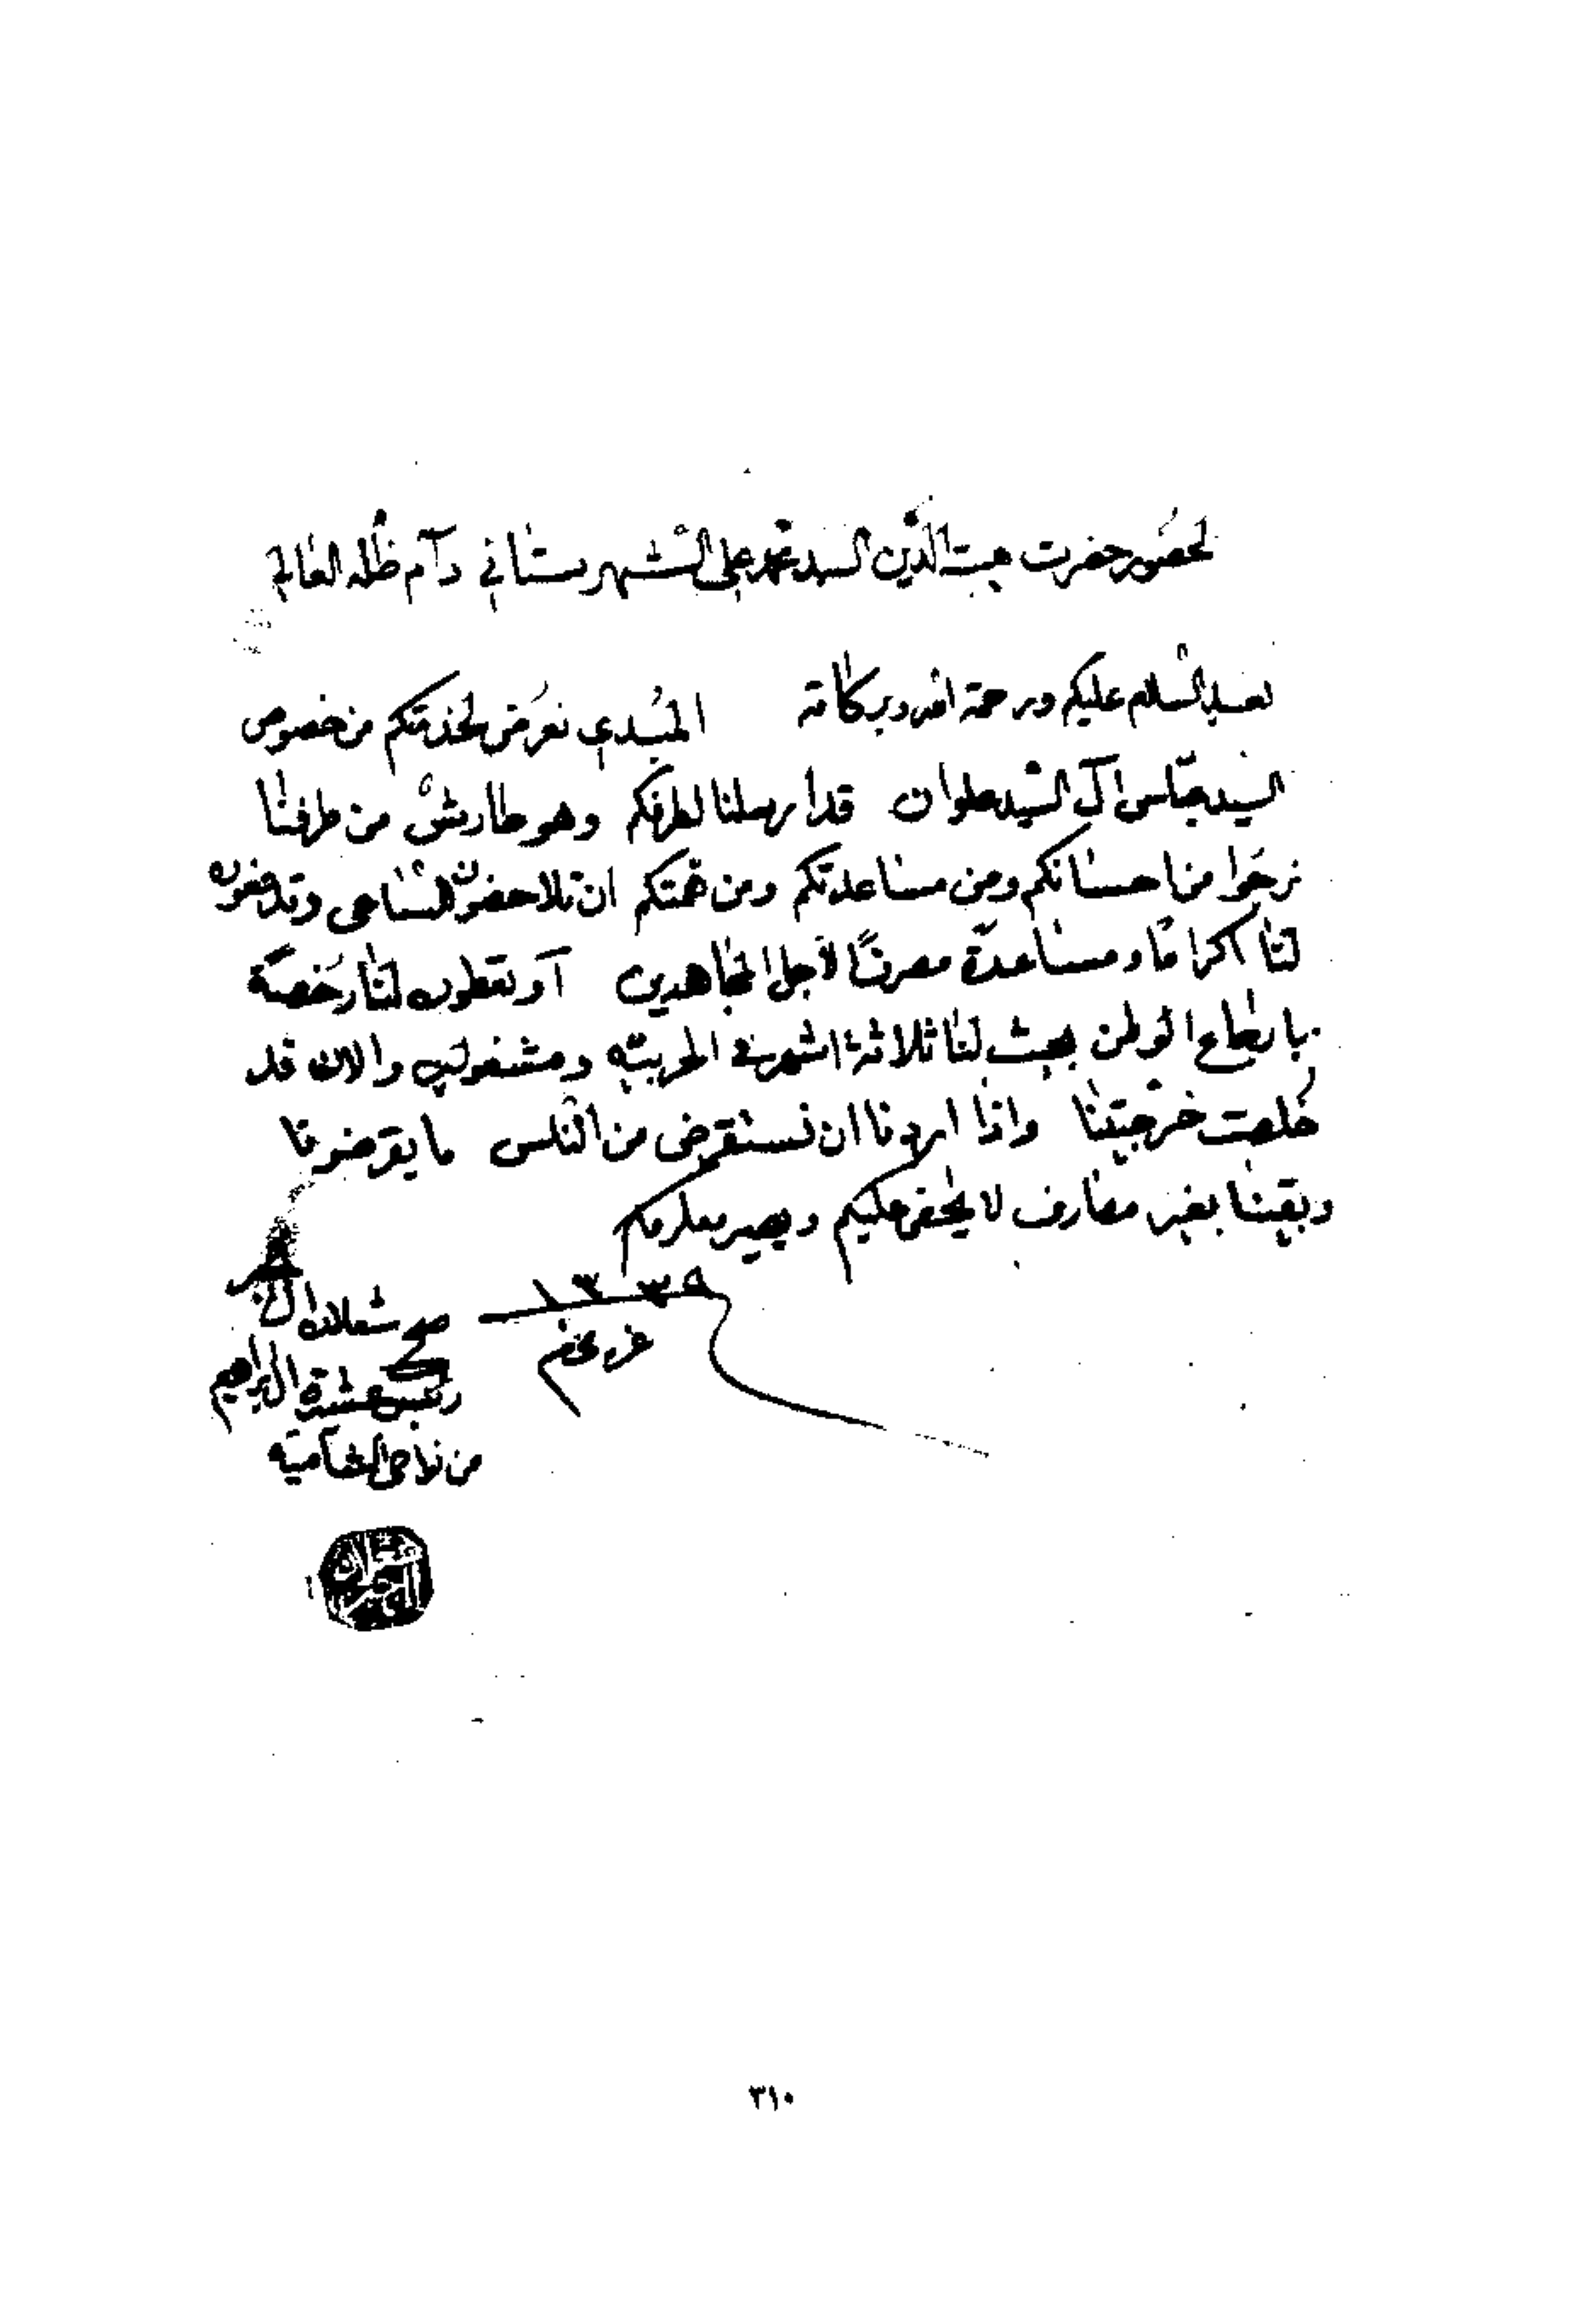 لحضور حضرت هبت الدين السيد محمد علي الشهرستاني دآم ظله العالي
بعد السلام عليكم ورحمة الله وبركاته المبدي نعرض لخدمتكم من خصوص
السيد عباس آل السيد علوان قد ارسلنا لطرفكم وهو طارش من طرفنا
نرجوا من احسانكم ومن مساعدتكم ومن همتكم ان تلاحضون وتدفعون
لنا اكراما ومساعدة مصرفًا لأجل المجاهدين آو تعطون لنا رخصة
بارجاع الوطن بحيث لنا ثلاثة اشهر في الحربيه ومشغولين والان قد
خلصت خرجيتنا واذا اردنا ان نستقرض من الناس ما يقرضونا
وبقينا بغير مصارف لا يخفى عليكم ويصير معلومكم
١٣٣٩
صح شعلان
رئيس عشيرة آل ابراهيم
من نواحي الشاميه
٣١٠